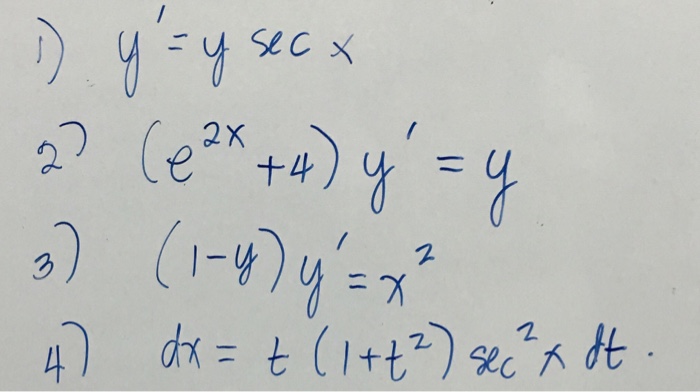 1) y' = y sec x
2) (e^{2x} + 4) y' = y
3) (1-y) y' = x^2
4) dx = t (1+t^2) sec^2 x dt.